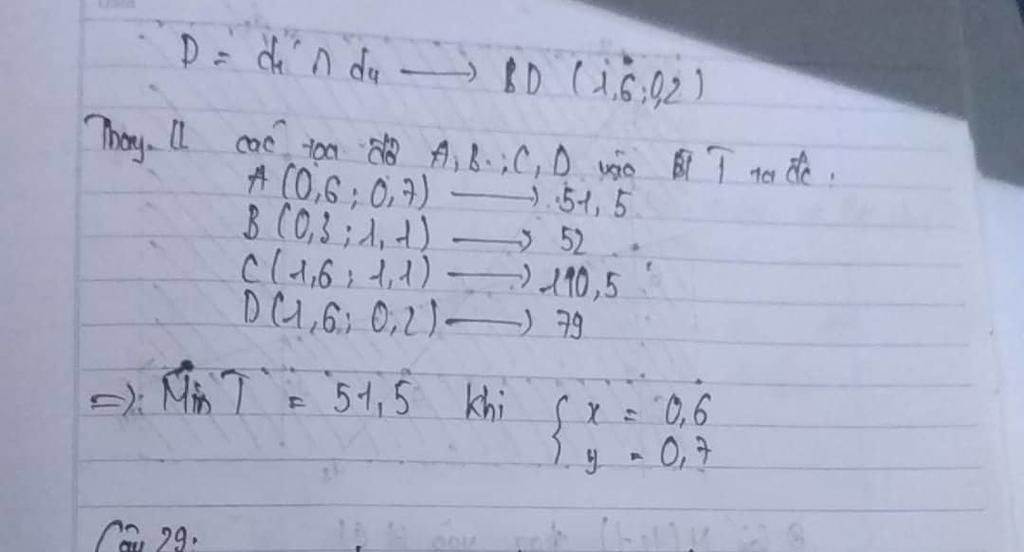 D = d₁ ∩ d₄ → BD (1,6 ; 0,2)
Thay. ll các toạ độ A, B. ; C, D vào T ta đc :
A (0,6 ; 0,7) → 51,5
B (0,3 ; 1,1) → 52
C (1,6 ; 1,1) → 110,5
D (1,6 ; 0,2) → 79
=>: Min T = 51,5 khi { x = 0,6
y = 0,7
Câu 29: